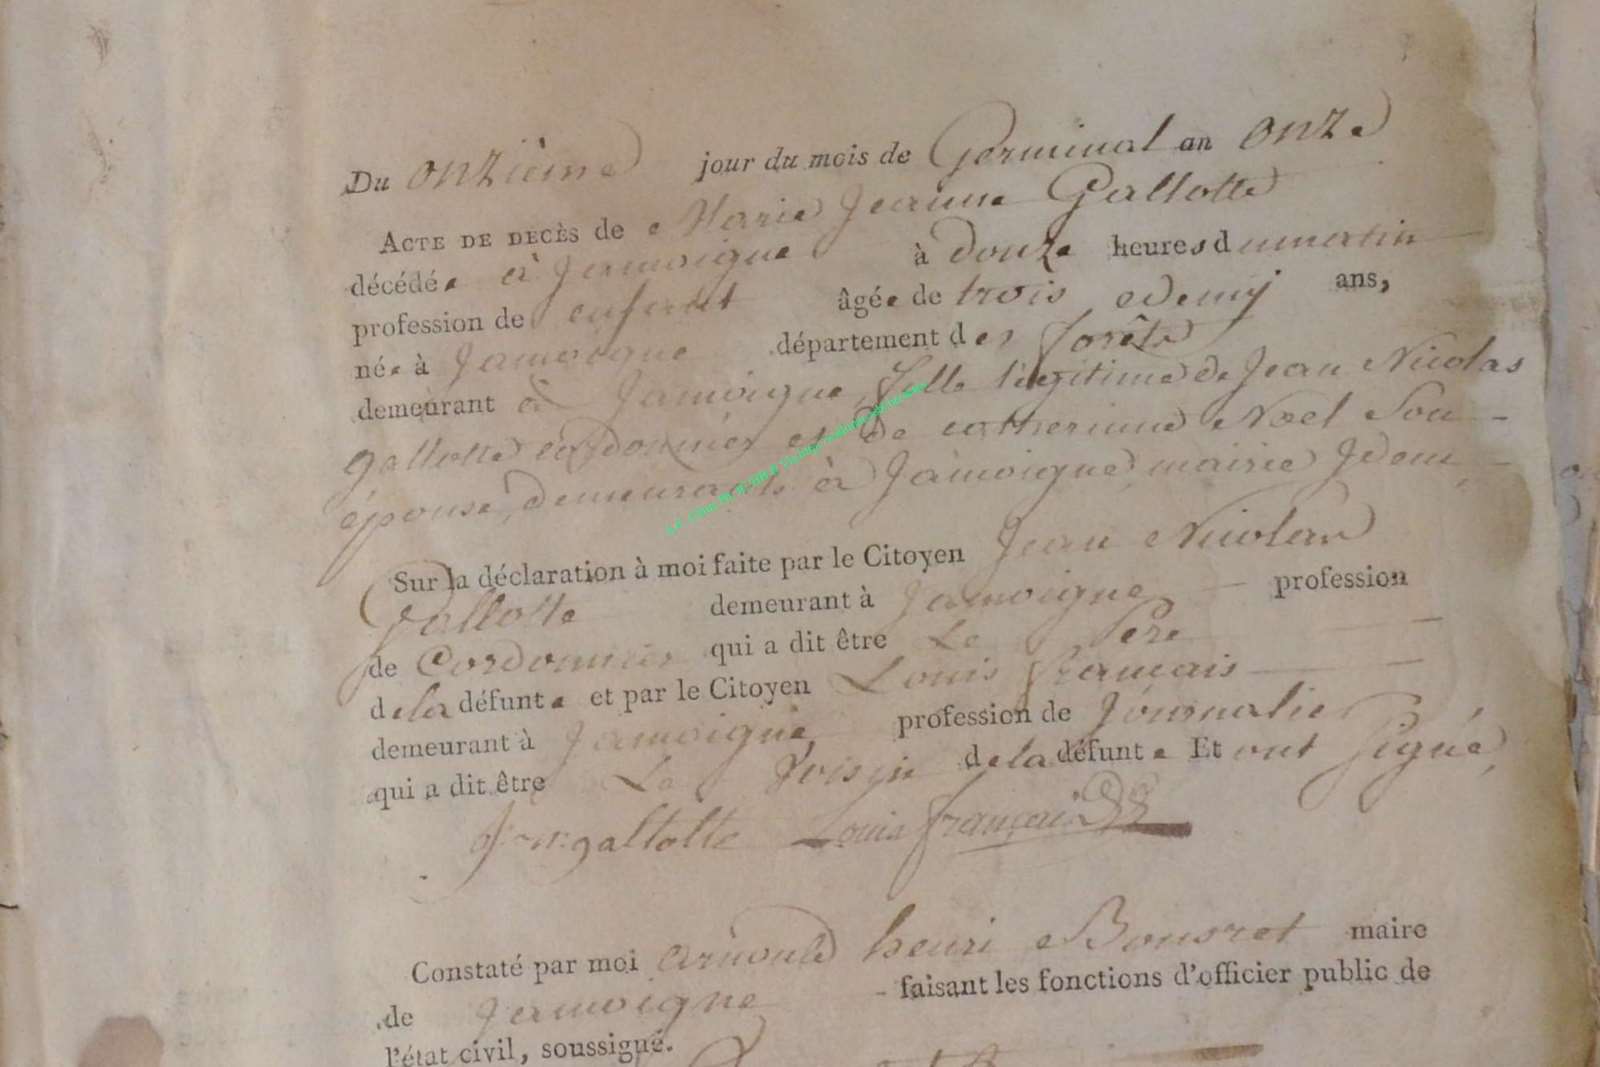 Du onzième jour du mois de Germinal an onze
ACTE DE DECÈS de Marie Jeanne Gallotte
décédée à Jamoigne à douze heures du matin
profession de enfant âgée de trois edemy ans,
née à Jamoigne département des forêts
demeurant à Jamoigne, fille légitime de Jean Nicolas
gallotte cordonnier et De catherinne Noel Son
épouse, demeurants à Jamoigne mairie Idem
Sur la déclaration à moi faite par le Citoyen Jean Nicolas
Gallotte demeurant à Jamoigne profession
de Cordonnier qui a dit être Le Pere
dela défunte et par le Citoyen Louis français
demeurant à Jamoigne profession de Journalier
qui a dit être Le Voisin dela défunte Et ont Signé,
gallotte Louis françois
Constaté par moi arnould henri maire
de Jamoigne faisant les fonctions d'officier public de
l'état civil, soussigné.